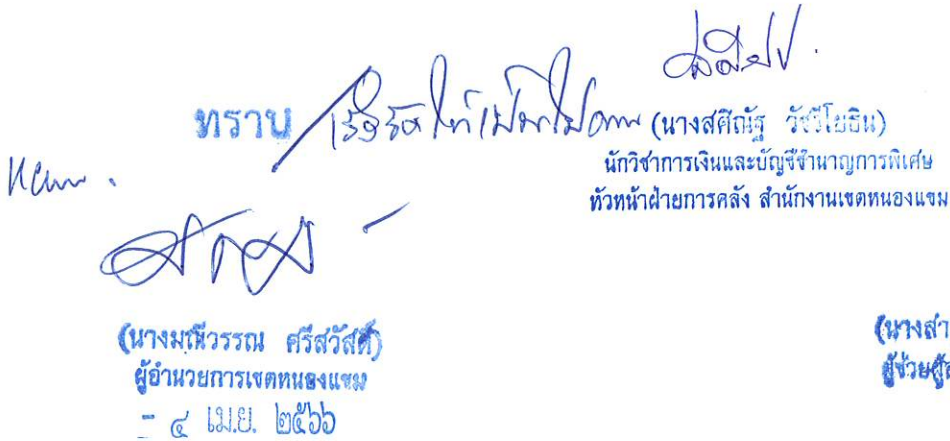 ทราบ เร่งรัดให้เป็นไปตาม
แผน.
(นางสศิณัฐ วัชวีโยธิน)
นักวิชาการเงินและบัญชีชำนาญการพิเศษ
หัวหน้าฝ่ายการคลัง สำนักงานเขตหนองแขม
(นางมณีวรรณ ศรีสวัสดิ์)
ผู้อำนวยการเขตหนองแขม
- ๔ เม.ย. ๒๕๖๖
(นางสำ
ผู้ช่วยผู้อ